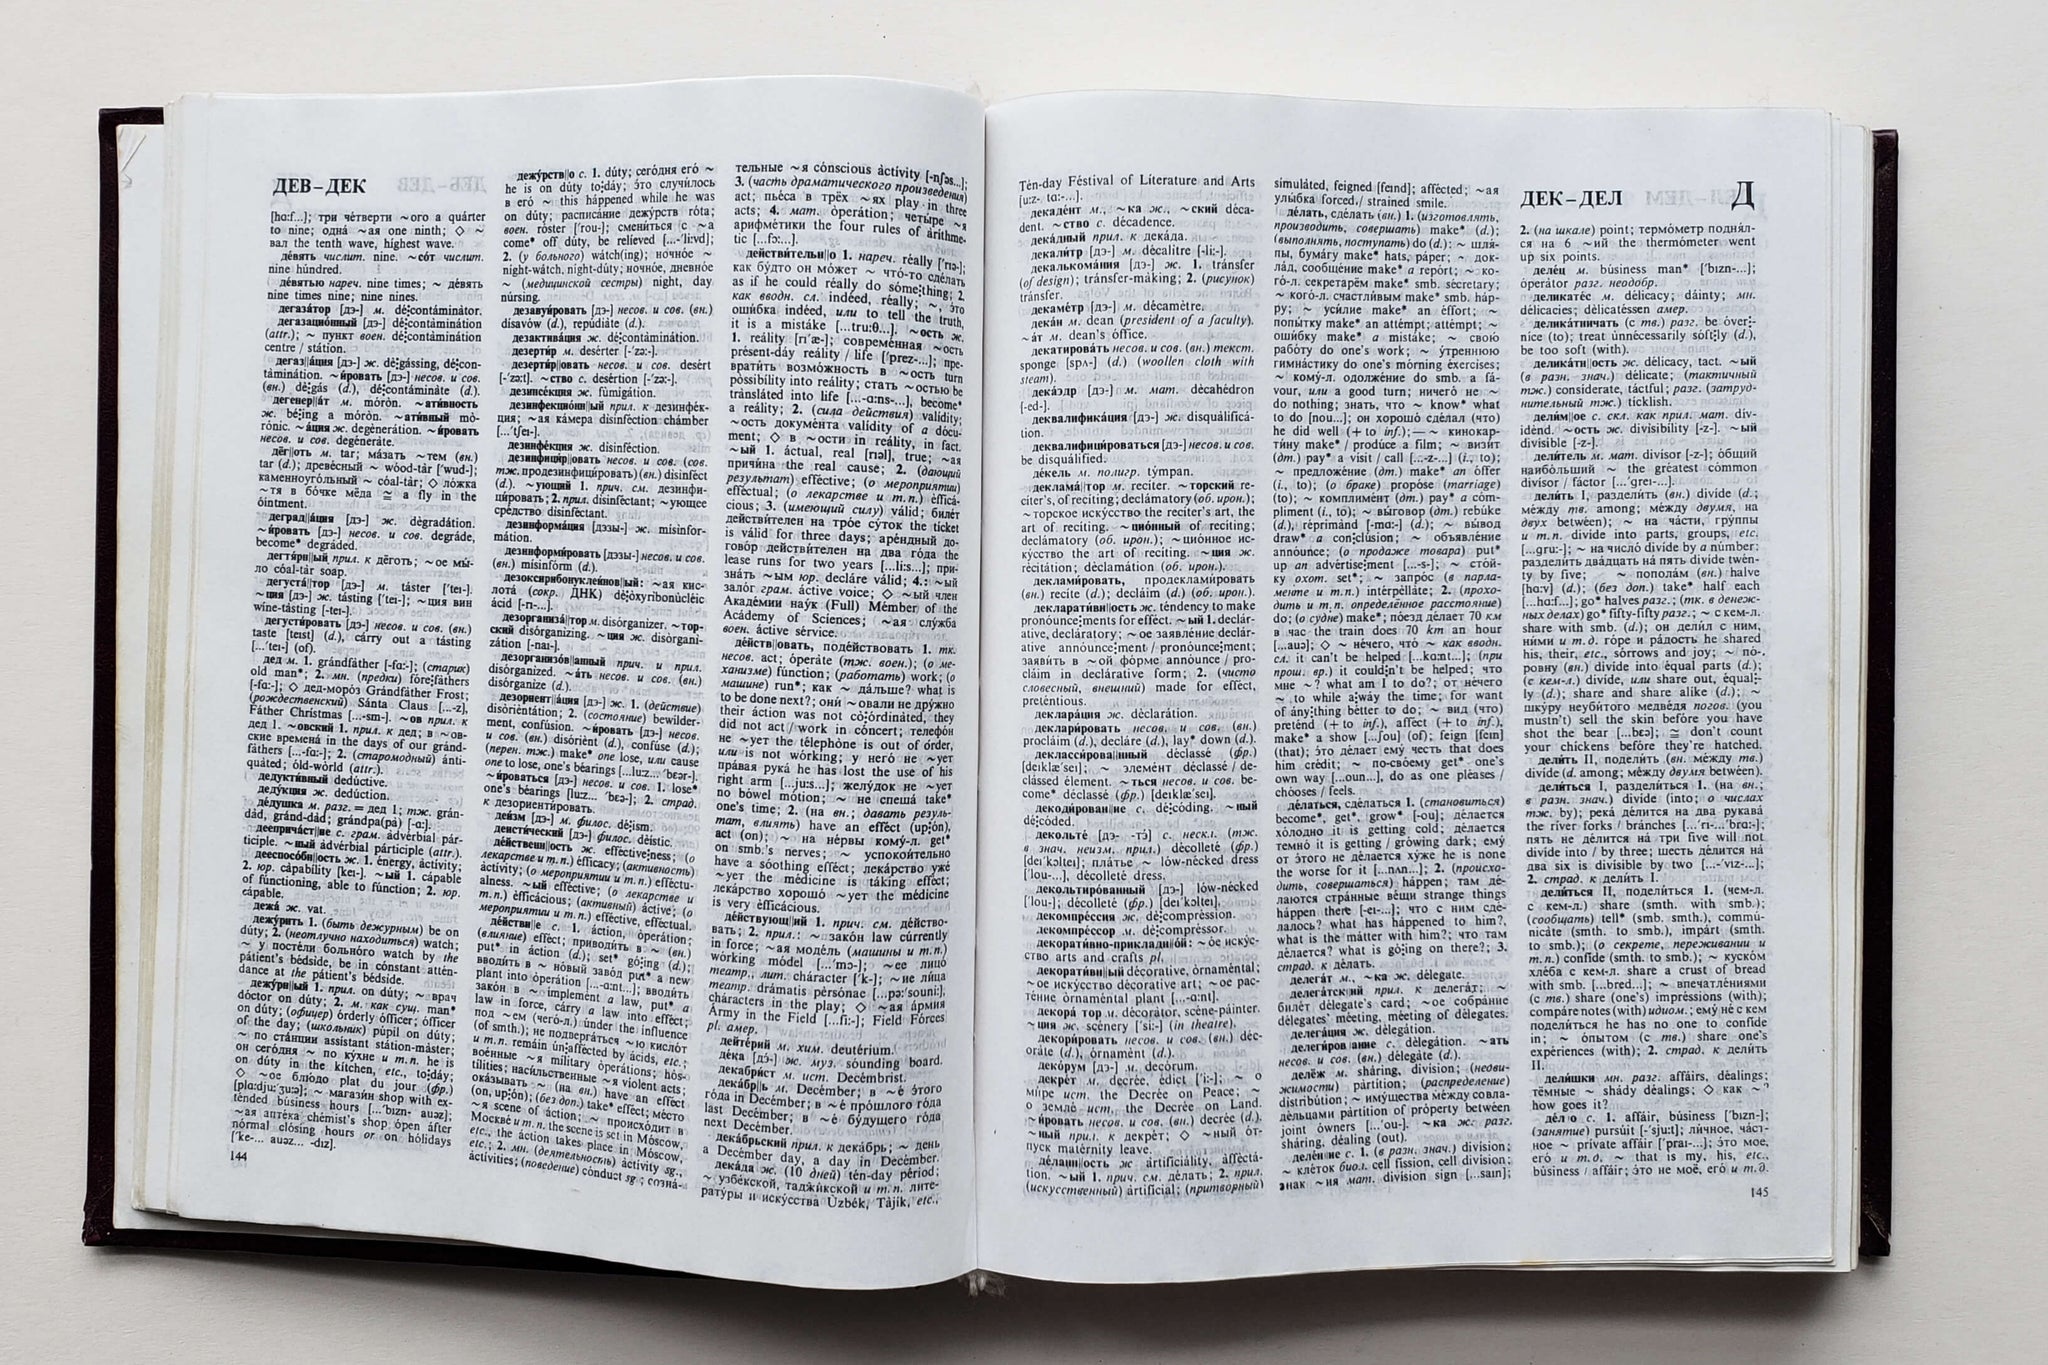 ДЕВ–ДЕК
[hɑ:f...]; три че́тверти ~ого a quárter
to nine; одна́ ~ая one ninth; ◇ ~
вал the tenth wave, highest wave.
де́вять числит. nine. ~со́т числит.
nine húndred.
де́вятью нареч. nine times; ~ де́вять
nine times nine; nine nines.
дегаза́тор [дэ-] м. dè¦contáminàtor.
дегазацио́нный [дэ-] dè¦contàminátion
(attr.); ~ пункт воен. dè¦contàminátion
centre / státion.
дегаз||а́ция [дэ-] ж. dè¦gássing, dè¦con-
tàminátion. ~и́ровать [дэ-] несов. и сов.
(вн.) dè¦gás (d.), dè¦contáminàte (d.).
дегенер||а́т м. mórón. ~ати́вность
ж. bé¦ing a mórón. ~ати́вный mò-
rónic. ~а́ция ж. degènerátion. ~и́ровать
несов. и сов. degéneràte.
дёг||оть м. tar; ма́зать ~тем (вн.)
tar (d.); древе́сный ~ wóod-tàr ['wud-];
каменноу́гольный ~ cóal-tàr; ◇ ло́жка
~тя в бо́чке мёда ≅ a fly in the
óintment.
деград||а́ция [дэ-] ж. dègradátion.
~и́ровать [дэ-] несов. и сов. degráde,
become* degráded.
дегтя́рн||ый прил. к дёготь; ~ое мы́-
ло cóal-tàr soap.
дегуста́||тор [дэ-] м. táster ['tei-].
~ция [дэ-] ж. tásting ['tei-]; ~ция вин
wíne-tàsting [-tei-].
дегусти́ровать [дэ-] несов. и сов. (вн.)
taste [teist] (d.), cárry out a tásting
[...'tei-] (of).
дед м. 1. grándfàther [-fɑ:-]; (старик)
old man*; 2. мн. (предки) fóre¦fàthers
[-fɑ:-]; ◇ дед-моро́з Grándfàther Frost;
(рождественский) Sánta Claus [...-z],
Fáther Chrístmas [...-sm-]. ~ов прил. к
дед 1. ~овский 1. прил. к дед; в ~ов-
ские времена́ in the days of our gránd-
fàthers [...-fɑ:-]; 2. (старомодный) ánti-
quàted; óld-wòrld (attr.).
дедукти́вный dedúctive.
деду́кция ж. dedúction.
де́душка м. разг. = дед 1; тж. grán-
dàd, gránd-dàd; grándpa(pà) [-ɑ:].
дееприча́ст||ие с. грам. advérbial pár-
ticiple. ~ный advérbial párticiple (attr.).
дееспосо́бн||ость ж. 1. énergy, àctívity;
2. юр. càpabílity [kei-]. ~ый 1. cápable
of fúnctioning, able to fúnction; 2. юр.
cápable.
дежа́ ж. vat.
дежу́рить 1. (быть дежурным) be on
dúty; 2. (неотлучно находиться) watch;
~ у посте́ли больно́го watch by the
pátient's bédside, be in cónstant attén-
dance at the pátient's bédside.
дежу́рн||ый 1. прил. on dúty; ~ врач
dóctor on dúty; 2. м. как сущ. man*
on dúty; (офицер) órderly òfficer; ófficer
of the day; (школьник) púpil on dúty;
~ по ста́нции assístant státion-màster;
он сего́дня ~ по ку́хне и т.п. he is
on dúty in the kítchen, etc., to¦dáy;
◇ ~ое блю́до plat du jour (фр.)
[plɑ:dju:'ʒu:ə]; ~ магази́н shop with ex-
ténded búsiness hours [...'bızn- auəz];
~ая апте́ка chémist's shop ópen áfter
nórmal clósing hours or on hólidays
['ke-... auəz... -dız].
144
дежу́рств||о с. 1. dúty; сего́дня его́ ~
he is on dúty to¦dáy; э́то случи́лось
в его́ ~ this háppened while he was
on dúty; расписа́ние дежу́рств róta;
воен. róster ['rou-]; смени́ться с ~а
come* off dúty, be relíeved [...-'li:vd];
2. (у больного) wátch(ing); ночно́е ~
níght-wàtch, night-dùty; ночно́е, дневно́е
~ (медицинской сестры) night, day
núrsing.
дезавуи́ровать [дэ-] несов. и сов. (вн.)
disavów (d.), repúdiàte (d.).
дезактива́ция ж. dè¦contàminátion.
дезерти́р м. desérter [-'zə:-].
дезерти́р||овать несов. и сов. desért
[-'zə:t]. ~ство с. desértion [-'zə:-].
дезинсе́кция ж. fùmigátion.
дезинфекцио́нн||ый прил. к дезинфе́к-
ция; ~ая ка́мера disinféction chámber
[...'tʃeı-].
дезинфе́кция ж. dìsinféction.
дезинфици́р||овать несов. и сов. (сов.
тж. продезинфици́ровать) (вн.) disinféct
(d.). ~ующий 1. прич. см. дезинфи-
ци́ровать; 2. прил. dìsinféctant; ~ующее
сре́дство dìsinféctant.
дезинформа́ция [дэзы-] ж. mìsinfor-
mátion.
дезинформи́ровать [дэзы-] несов. и сов.
(вн.) mìsinfórm (d.).
дезоксирибонуклеи́нов||ый: ~ая кис-
лота́ (сокр. ДНК) dè¦óxyrìbonùcleic
ácid [-rı-...].
дезорганиза́||тор м. disórganizer. ~тор-
ский disórganizing. ~ция ж. disòrgani-
zátion [-naı-].
дезорганизо́в||анный прич. и прил.
disórganized. ~а́ть несов. и сов. (вн.)
disórganize (d.).
дезориент||а́ция [дэ-] ж. 1. (действие)
disòrientátion; 2. (состояние) bewílder-
ment, confúsion. ~и́ровать [дэ-] несов.
и сов. (вн.) disórient (d.), confúse (d.);
(перен. тж.) make* one lose, или cause
one to lose, one's béarings [...lu:z... 'bɛər-].
~и́роваться [дэ-] несов. и сов. 1. lose*
one's béarings [lu:z... 'bɛə-]; 2. страд.
к дезориенти́ровать.
деи́зм м. филос. dé¦ism.
деисти́ческий [дэ-] филос. dèístic.
де́йственн||ость ж. efféctive¦ness; (о
лекарстве и т.п.) éfficacy; (активность)
àctívity; (о мероприятии и т.п.) efféctu-
alness. ~ый efféctive; (о лекарстве и
т.п.) èfficácious; (активный) áctive; (о
мероприятии и т.п.) efféctive, efféctual.
де́йстви||е с. 1. áction, òperátion;
(влияние) efféct; приводи́ть в ~ (вн.)
put* in áction (d.); set* gó¦ing (d.);
вводи́ть в ~ но́вый заво́д put* a new
plant ínto òperátion [...-ɑ:nt...]; вводи́ть
зако́н в ~ ímplement a law, put* a
law in force, cárry a law ínto efféct;
под ~ем (чего-л.) únder the ínfluence
(of smth.); не подверга́ться ~ю кисло́т
и т.п. remáin ún¦affécted by ácids, etc.;
вое́нные ~я mílitary òperátions; hos-
tílities; наси́льственные ~я víolent acts;
ока́зывать ~ (на вн.) have an efféct
(on, up¦ón); (без доп.) take* efféct; ме́сто
~я scene of áction; ~ происхо́дит в
Москве́ и т.п. the scene is set in Móscow,
etc., the áction takes place in Móscow,
etc.; 2. мн. (деятельность) àctívity sg.,
àctívities; (поведение) cónduct sg.; созна́-
тельные ~я cónscious àctívity [-nʃəs...];
3. (часть драматического произведения)
act; пье́са в трёх ~ях play in three
acts; 4. мат. òperátion; четы́ре ~я
арифме́тики the four rules of aríthme-
tic [...fɔ:...].
действи́тельн||о 1. нареч. réally ['rıə-];
как бу́дто он мо́жет ~ что́-то сде́лать
as if he could réally do sóme¦thing; 2.
как вводн. сл. indéed, réally; ~, э́то
оши́бка indéed, или to tell the truth,
it is a mistáke [...tru:θ...]. ~ость ж.
1. reálity [rı'æ-]; совреме́нная ~ость
présent-day reálity / life ['prez-...]; пре-
врати́ть возмо́жность в ~ость turn
pòssibílity ínto reálity; стать ~остью be
transláted ínto life [...-ɑ:ns-...], becóme*
a reálity; 2. (сила действия) valídity;
~ость докуме́нта valídity of a dócu-
ment; ◇ в ~ости in reálity, in fact.
~ый 1. áctual, real [rıəl], true; ~ая
причи́на the real cause; 2. (дающий
результат) efféctive; (о мероприятии)
efféctual; (о лекарстве и т.п.) èfficá-
cious; 3. (имеющий силу) válid; биле́т
действи́телен на тро́е су́ток the tícket
is válid for three days; аре́ндный до-
гово́р действи́телен на два го́да the
lease runs for two years [...li:s...]; при-
зна́ть ~ым юр. decláre válid; 4.: ~ый
зало́г грам. áctive voice; ◇ ~ый член
Акаде́мии нау́к (Full) Mémber of the
Acádemy of Sciences; ~ая слу́жба
воен. áctive sérvice.
де́йств||овать, поде́йствовать 1. тк.
несов. act; óperàte (тж. воен.); (о ме-
ханизме) fúnction; (работать) work; (о
машине) run*; как ~ да́льше? what is
to be done next?; они́ ~овали не дру́жно
their áction was not có¦órdinàted, they
did not act / work in cóncert; телефо́н
не ~ует the télephòne is out of órder,
или is not wórking; у него́ не ~ует
пра́вая рука́ he has lost the use of his
right arm [...ju:s...]; желу́док не ~ует
no bówel mótion; ~ не спеша́ take*
one's time; 2. (на вн.; давать резуль-
тат, влиять) have an efféct (up¦ón),
act (on); ~ на не́рвы кому́-л. get*
on smb.'s nerves; ~ успокои́тельно
have a sóothing efféct; лека́рство уже́
~ует the médicine is táking efféct;
лека́рство хорошо́ ~ует the médicine
is véry èfficácious.
де́йствующ||ий 1. прич. см. де́йство-
вать; 2. прил.: ~ зако́н law cúrrently
in force; ~ая моде́ль (машины и т.п.)
wórking módel [...'mɔ-]; ~ее лицо́
театр., лит. cháracter ['k-]; ~ие ли́ца
театр. drámatis persónae [...pə:'souni:];
cháracters in the play; ◇ ~ая а́рмия
Army in the Field [...fi:-]; Field Fórces
pl. амер.
дейте́рий м. хим. deutérium.
де́ка [дэ́-] ж. муз. sóunding board.
декабри́ст м. ист. Decémbrist.
дека́бр||ь м. Decémber; в ~е́ э́того
го́да in Decémber; в ~е́ про́шлого го́да
last Decémber; в ~е́ бу́дущего го́да
next Decémber.
дека́брьский прил. к дека́брь; ~ день
a Decémber day, a day in Decémber.
дека́да ж. (10 дней) tén-day périod;
~ узбе́кской, таджи́кской и т.п. лите-
рату́ры и иску́сства Uzbék, Tàjík, etc.,
ДЕК–ДЕЛ Д
Tén-day Féstival of Líterature and Arts
[u:z-, tɑ:-...].
декаде́нт м., ~ка ж., ~ский déca-
dent. ~ство с. décadence.
дека́дный прил. к дека́да.
декали́тр [дэ-] м. décalitre [-li:-].
декалькома́ния [дэ-] ж. 1. tránsfer
(of design); tránsfer-màking; 2. (рисунок)
tránsfer.
декаме́тр [дэ-] м. décamètre.
дека́н м. dean (president of a faculty).
~а́т м. dean's óffice.
декатирова́ть несов. и сов. (вн.) текст.
sponge [spʌ-] (d.) (woollen cloth with
steam).
дека́эдр [дэ-] м. мат. dècahédron
[-ed-].
деквалифика́ция [дэ-] ж. disquàlificá-
tion.
деквалифици́роваться [дэ-] несов. и сов.
be disquálified.
де́кель м. полигр. týmpan.
деклама́||тор м. recíter. ~торский re-
cíter's, of recíting; declámatory (об. ирон.);
~торское иску́сство the recíter's art, the
art of recíting. ~цио́нный of recíting;
declámatory (об. ирон.); ~цио́нное ис-
ку́сство the art of recíting. ~ция ж.
rècitátion; dèclamátion (об. ирон.).
деклами́ровать, продеклами́ровать
(вн.) recíte (d.); decláim (d.) (об. ирон.).
декларати́вн||ость ж. téndency to make
pronóunce¦ments for efféct. ~ый 1. declár-
ative, decláratory; ~ое заявле́ние declár-
ative annóunce¦ment / pronóunce¦ment;
заяви́ть в ~ой фо́рме annóunce / pro-
cláim in declárative form; 2. (чисто
словесный, внешний) made for efféct,
preténtious.
деклара́ция ж. dèclarátion.
деклари́ровать несов. и сов. (вн.)
procláim (d.), decláre (d.), lay* down (d.).
деклассиро́ва||нный déclassé (фр.)
[deıklæ'seı]; ~ элеме́нт déclassé / de-
clássed élement. ~ться несов. и сов. be-
cóme* déclassé (фр.) [deıklæ'seı].
декоди́рован||ие с. dè¦códing. ~ный
dè¦códed.
декольте́ [дэ- -тэ́] с. нескл. (тж.
в знач. неизм. прил.) décolleté (фр.)
[deı'kɔlteı]; пла́тье ~ lów-nécked dress
['lou-...], décolleté dress.
декольтиро́ванный [дэ-] lów-nécked
['lou-]; décolleté (фр.) [deı'kɔlteı].
декомпре́ссия ж. dè¦compréssion.
декомпре́ссор м. dè¦compréssor.
декорати́вно-прикладн||о́й: ~о́е иску́с-
ство arts and crafts pl.
декорати́вн||ый décorative, òrnaméntal;
~ое иску́сство décorative art; ~ое рас-
те́ние òrnaméntal plant [...-ɑ:nt].
декора́||тор м. décoràtor, scéne-pàinter.
~ция ж. scénery ['si:-] (in theatre).
декори́ровать несов. и сов. (вн.) déc-
oràte (d.), órnamènt (d.).
деко́рум [дэ-] м. decórum.
декре́т м. decrée, édict ['i:-]; ~ о
ми́ре ист. the Decrée on Peace; ~
о земле́ ист. the Decrée on Land.
~и́ровать несов. и сов. (вн.) decrée (d.).
~ный прил. к декре́т; ◇ ~ный о́т-
пуск matérnity leave.
де́ланн||ость ж. àrtificiálity, àffectá-
tion. ~ый 1. прич. см. де́лать; 2. прил.
(искусственный) àrtifícial; (притворный)
símulàted, feigned [feınd]; affécted; ~ая
улы́бка forced / strained smile.
де́лать, сде́лать (вн.) 1. (изготовлять,
производить, совершать) make* (d.);
(выполнять, поступать) do (d.); ~ шля́-
пы, бума́гу make* hats, páper; ~ док-
ла́д, сообще́ние make* a repórt; ~ ко-
го́-л. секретарём make* smb. sécretary;
~ кого́-л. счастли́вым make* smb. háp-
py; ~ уси́лие make* an éffort; ~
попы́тку make* an attémpt; attémpt; ~
оши́бку make* a mistáke; ~ свою́
рабо́ту do one's work; ~ у́треннюю
гимна́стику do one's mórning éxercises;
~ кому́-л. одолже́ние do smb. a fá-
vour, или a good turn; ничего́ не ~
do nothing; знать, что ~ know* what
to do [nou...]; он хорошо́ сде́лал (что)
he did well (+ to inf.); — ~ кинокар-
ти́ну make* / prodúce a film; ~ визи́т
(дт.) pay* a vísit / call [...-z-...] (i., to);
~ предложе́ние (дт.) make* an óffer
(i., to); (о браке) propóse (márriage)
(to); ~ комплиме́нт (дт.) pay* a cóm-
pliment (i., to); ~ вы́говор (дт.) rebúke
(d.), réprimànd [-mɑ:-] (d.); ~ вы́вод
draw* a con¦clúsion; ~ объявле́ние
annóunce; (о продаже товара) put*
up an advértise¦ment [...-s-]; ~ сто́й-
ку охот. set*; ~ запро́с (в парла-
менте и т.п.) intérpellàte; 2. (прохо-
дить и т.п. определённое расстояние)
do; (о судне) make*; по́езд де́лает 70 км
в час the train does 70 km an hour
[...auə]; ◇ ~ не́чего, что ~ как вводн.
сл. it can't be helped [...kɑ:nt...]; (при
прош. вр.) it could¦n't be helped; что
мне ~? what am I to do?; от не́чего
~ to while a¦wáy the time; for want
of ány¦thing bétter to do; ~ вид (что)
preténd (+ to inf.), afféct (+ to inf.),
make a show [...ʃou] (of); feign [feın]
(that); э́то де́лает ему́ честь that does
him crédit; ~ по-сво́ему get* one's
own way [...oun...], do as one pléases /
chóoses / feels.
де́латься, сде́латься 1. (становиться)
becóme*, get*, grow* [-ou]; де́лается
хо́лодно it is gétting cold; де́лается
темно́ it is gétting / grówing dark; ему́
от э́того не де́лается ху́же he is none
the worse for it [...nʌn...]; 2. (происхо-
дить, совершаться) háppen; там де́-
лаются стра́нные ве́щи strange things
háppen there [-eı-...]; что с ним сде́-
лалось? what has háppened to him?,
what is the mátter with him?; что там
де́лается? what is gó¦ing on there?; 3.
страд. к де́лать.
делега́т м., ~ка ж. délegate.
делега́тский прил. к делега́т; ~
биле́т délegate's card; ~ое собра́ние
délegates' méeting, méeting of délegates.
делега́ция ж. dèlegátion.
делеги́рова||ние с. dèlegátion. ~ть
несов. и сов. (вн.) délegàte (d.).
делёж м. sháring, divísion; (недви-
жимости) partítion; (распределение)
dìstribútion; ~ иму́щества ме́жду совла-
де́льцами partítion of próperty betwéen
joint ówners [...'ou-]. ~ка ж. разг.
sháring, déaling (out).
деле́ние с. 1. (в разн. знач.) divísion;
~ кле́ток биол. cell físsion, cell divísion;
знак ~ия мат. divísion sign [...saın];
2. (на шкале) point; термо́метр подня́л-
ся на 6 ~ий the thermómeter went
up six points.
деле́ц м. búsiness man* ['bızn-...];
óperàtor разг. неодобр.
деликате́с м. délicacy; dáinty; мн.
délicacies; dèlicatéssen амер.
делика́тничать (с тв.) разг. be óver¦-
nice (to); treat ùnnécessarily sóft¦ly (d.),
be too soft (with).
делика́тн||ость ж. délicacy, tact. ~ый
(в разн. знач.) délicate; (тактичный
тж.) consíderate, táctful; разг. (затруд-
нительный тж.) tícklish.
дели́м||ое с. скл. как прил. мат. dív-
idènd. ~ость ж. divisibílity [-z-]. ~ый
divísible [-z-].
дели́тель м. мат. divísor [-z-]; о́бщий
наибо́льший ~ the gréatest cómmon
divísor / fáctor [...'greı-...].
дели́ть I, раздели́ть (вн.) divíde (d.;
ме́жду тв. amóng; ме́жду двумя, на
двух betwéen); ~ на ча́сти, гру́ппы
и т.п. divíde ínto parts, groups, etc.
[...gru:-]; ~ на число́ divíde by a númber;
раздели́ть два́дцать на пять divíde twén-
ty by five; ~ попола́м (вн.) halve
[hɑ:v] (d.); (без доп.) take* half each
[...hɑ:f...]; go* halves разг.; (тк. в денеж-
ных делах) go* fífty-fífty разг.; ~ с кем-л.
share with smb. (d.); он дели́л с ним,
ни́ми и т.д. го́ре и ра́дость he shared
his, their, etc., sórrows and joy; ~ по́-
ровну (вн.) divíde ínto équal parts (d.);
(с кем-л.) divíde, или share out, équal¦-
ly (d.); share and share alíke (d.); ~
шку́ру неуби́того медве́дя погов. (you
mustn't) sell the skin befóre you have
shot the bear [...bɛə]; ≅ don't count
your chíckens befóre they're hatched.
дели́ть II, подели́ть (вн. ме́жду тв.)
divíde (d. amóng; ме́жду двумя betwéen).
дели́ться I, раздели́ться 1. (на вн.;
в разн. знач.) divíde (ínto; о числах
тж. by); река́ де́лится на два рукава́
the ríver forks / bránches [...'rı-... 'brɑ:-];
пять не де́лится на три five will not
divíde ínto / by three; шесть де́лится на
два six is divísible by two [...-'vız-...];
2. страд. к дели́ть I.
дели́ться II, подели́ться 1. (чем-л.
с кем-л.) share (smth. with smb.);
(сообщать) tell* (smb. smth.), commú-
nicàte (smth. to smb.), impárt (smth.
to smb.); (о секрете, переживании и
т.п.) confíde (smth. to smb.); ~ куско́м
хле́ба с кем-л. share a crust of bread
with smb. [...bred...]; ~ впечатле́ниями
(с тв.) share (one's) impréssions (with);
compáre notes (with) идиом.; ему́ не с кем
подели́ться he has no one to confíde
in; ~ о́пытом (с тв.) share one's
expériences (with); 2. страд. к дели́ть
II.
дели́шки мн. разг. affáirs, déalings;
тёмные ~ shády déalings; ◇ как ~?
how goes it?
де́л||о с. 1. affáir, búsiness ['bızn-];
(занятие) pursúit [-'sju:t]; ли́чное, ча́ст-
ное ~ prívate affáir ['praı-...]; э́то мое,
его́ и т.д. ~ that is my, his, etc.,
búsiness / affáir; э́то не моё, его́ и т.д.
145